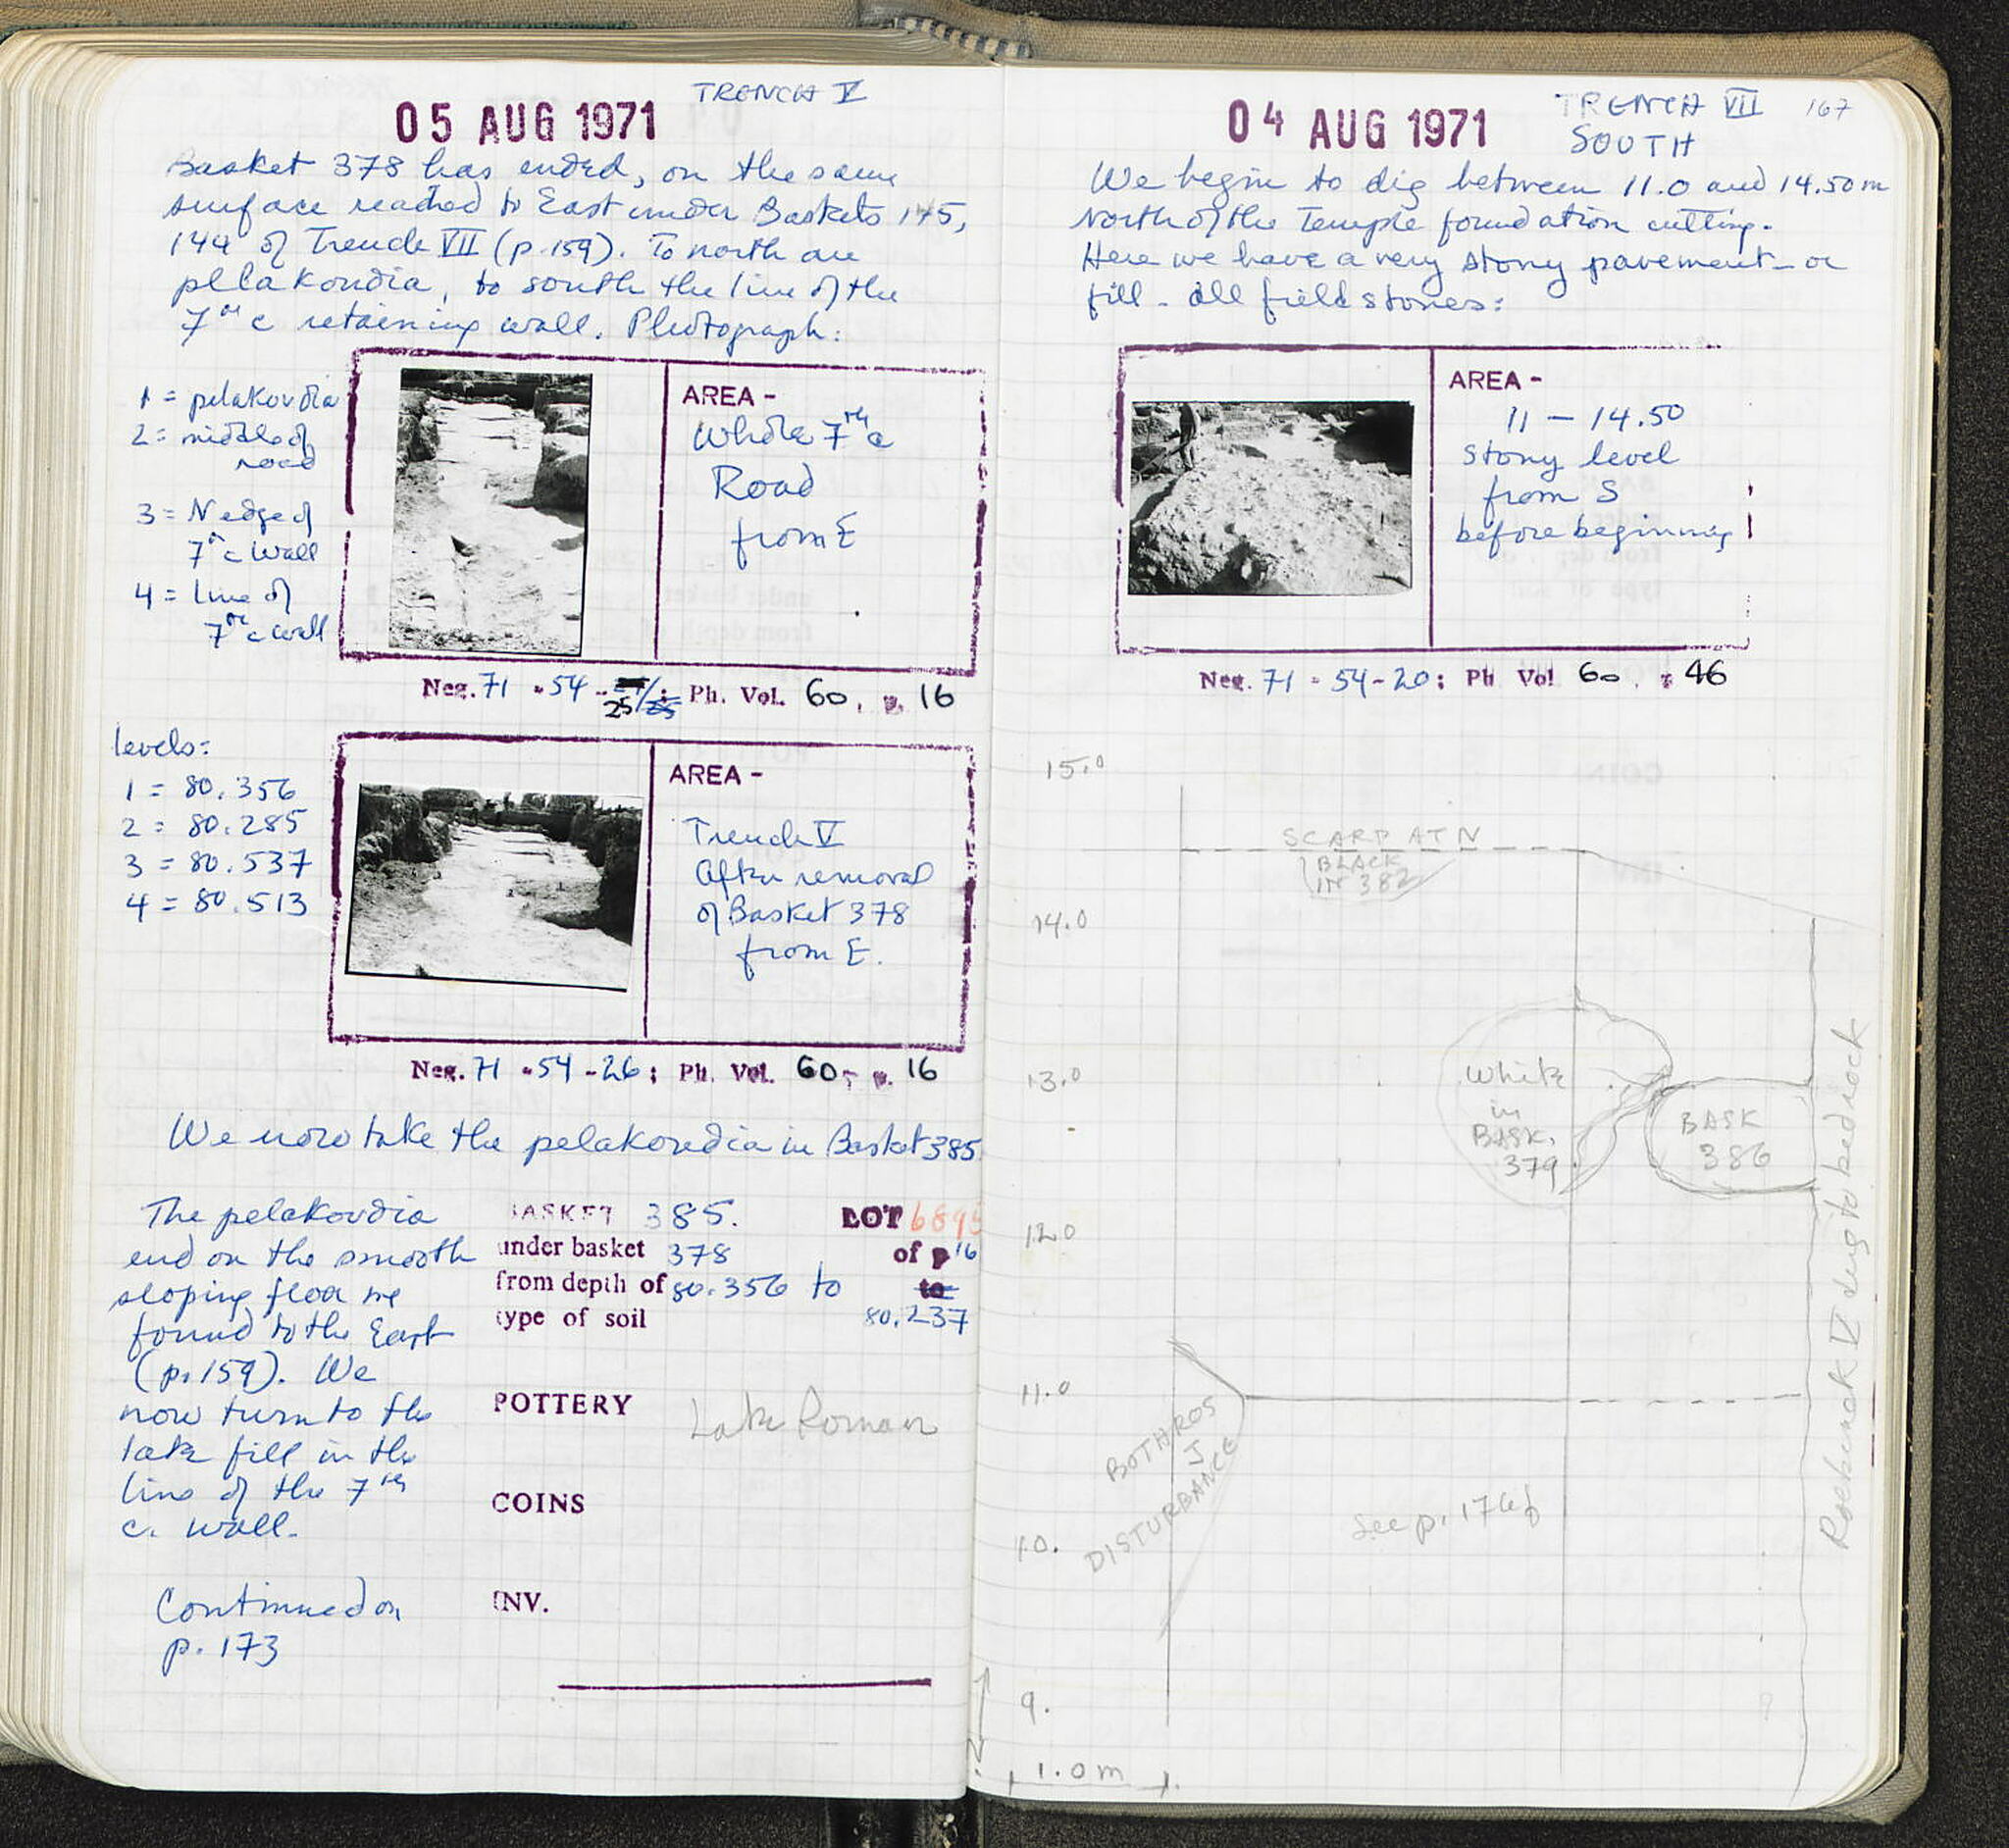 TRENCH V
05 AUG 1971
Basket 378 has ended, on the same
surface reached to East under Baskets 145,
144 of Trench VII (p. 159). To north are
pelakoudia, to south the line of the
7th c retaining wall. Photograph:
1 = pelakoudia
2 = middle of
road
3 = N edge of
7th c wall
4 = Line of
7th c wall
AREA -
Whole 7th c
Road
from E
Neg. 71 - 54 - 25/; Ph. Vol. 60, p. 16
levels:
1 = 80.356
2 = 80.285
3 = 80.537
4 = 80.513
AREA -
Trench V
After removal
of Basket 378
from E.
Neg. 71 - 54 - 26; Ph. Vol. 60, p. 16
We now take the pelakoudia in Basket 385
The pelakoudia
end on the smooth
sloping floor we
found to the East
(p. 159). We
now turn to the
late fill in the
line of the 7th
c. wall.
Continued on
p. 173
BASKET 385. LOT 6895
under basket 378 of p 16
from depth of 80.356 to
80.237
type of soil
POTTERY Late Roman
COINS
INV.
04 AUG 1971
TRENCH VII 167
SOUTH
We begin to dig between 11.0 and 14.50 m
North of the Temple foundation cutting.
Here we have a very stony pavement - or
fill - all field stones:
AREA -
11 - 14.50
stony level
from S
before beginning
Neg. 71 - 54 - 20; Ph Vol 60, p 46
15.0
SCARP AT N
BLACK
IN 382
14.0
13.0
White
in
BASK.
379
BASK
386
12.0
11.0
BOTHROS
J
DISTURBANCE
See p. 174f
10.
9.
1.0 m
dug to bedrock